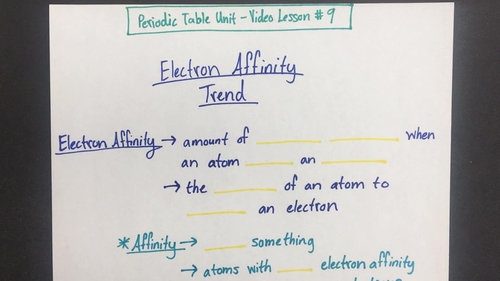 Periodic Table Unit - Video Lesson # 9
Electron Affinity
Trend
Electron Affinity → amount of ______ ______ when
an atom ______ an ______
→ the ______ of an atom to
______ an electron
*Affinity → ______ something
→ atoms with ______ electron affinity